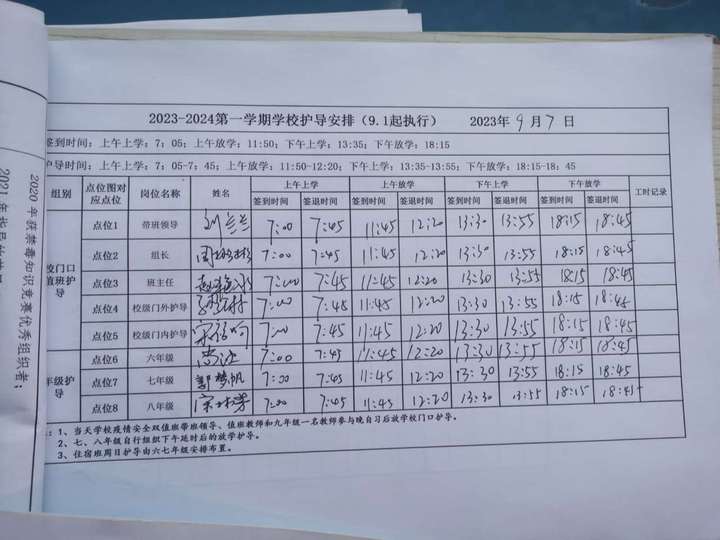 2020年获禁毒知识竞赛优秀组织者；
2023-2024第一学期学校护导安排（9.1起执行） 2023年 9 月 7 日
签到时间：上午上学：7：05；上午放学：11:50；下午上学：13:35；下午放学：18:15
护导时间：上午上学：7：05-7：45；上午放学：11:50-12:20；下午上学：13:35-13:55；下午放学：18:15-18：45
组别 点位图对应点位 岗位名称 姓名 上午上学 上午放学 下午上学 下午放学 工时记录
签到时间 签退时间 签到时间 签退时间 签到时间 签退时间 签到时间 签退时间
校门口值班护导
点位1 带班领导 刘兰兰 7:00 7:45 11:45 12:20 13:30 13:55 18:15 18:45
点位2 组长 7:00 7:45 11:45 12:20 13:30 13:55 18:15 18:45
点位3 班主任 7:00 7:45 11:45 12:20 13:30 13:55 18:15 18:45
点位4 校级门外护导 7:00 7:45 11:45 12:20 13:30 13:55 18:15 18:45
点位5 校级门内护导 7:00 7:45 11:45 12:20 13:30 13:55 18:15 18:45
年级护导
点位6 六年级 7:00 7:45 11:45 12:20 13:30 13:55 18:15 18:45
点位7 七年级 郭梦帆 7:00 7:45 11:45 12:20 13:30 13:55 18:15 18:45
点位8 八年级 7:00 7:45 11:45 12:20 13:30 13:55 18:15 18:45
：1、当天学校疫情安全双值班带班领导、值班教师和九年级一名教师参与晚自习后放学校门口护导。
2、七、八年级自行组织下午延时后的放学护导。
3、住宿班周日护导由六七年级安排布置。